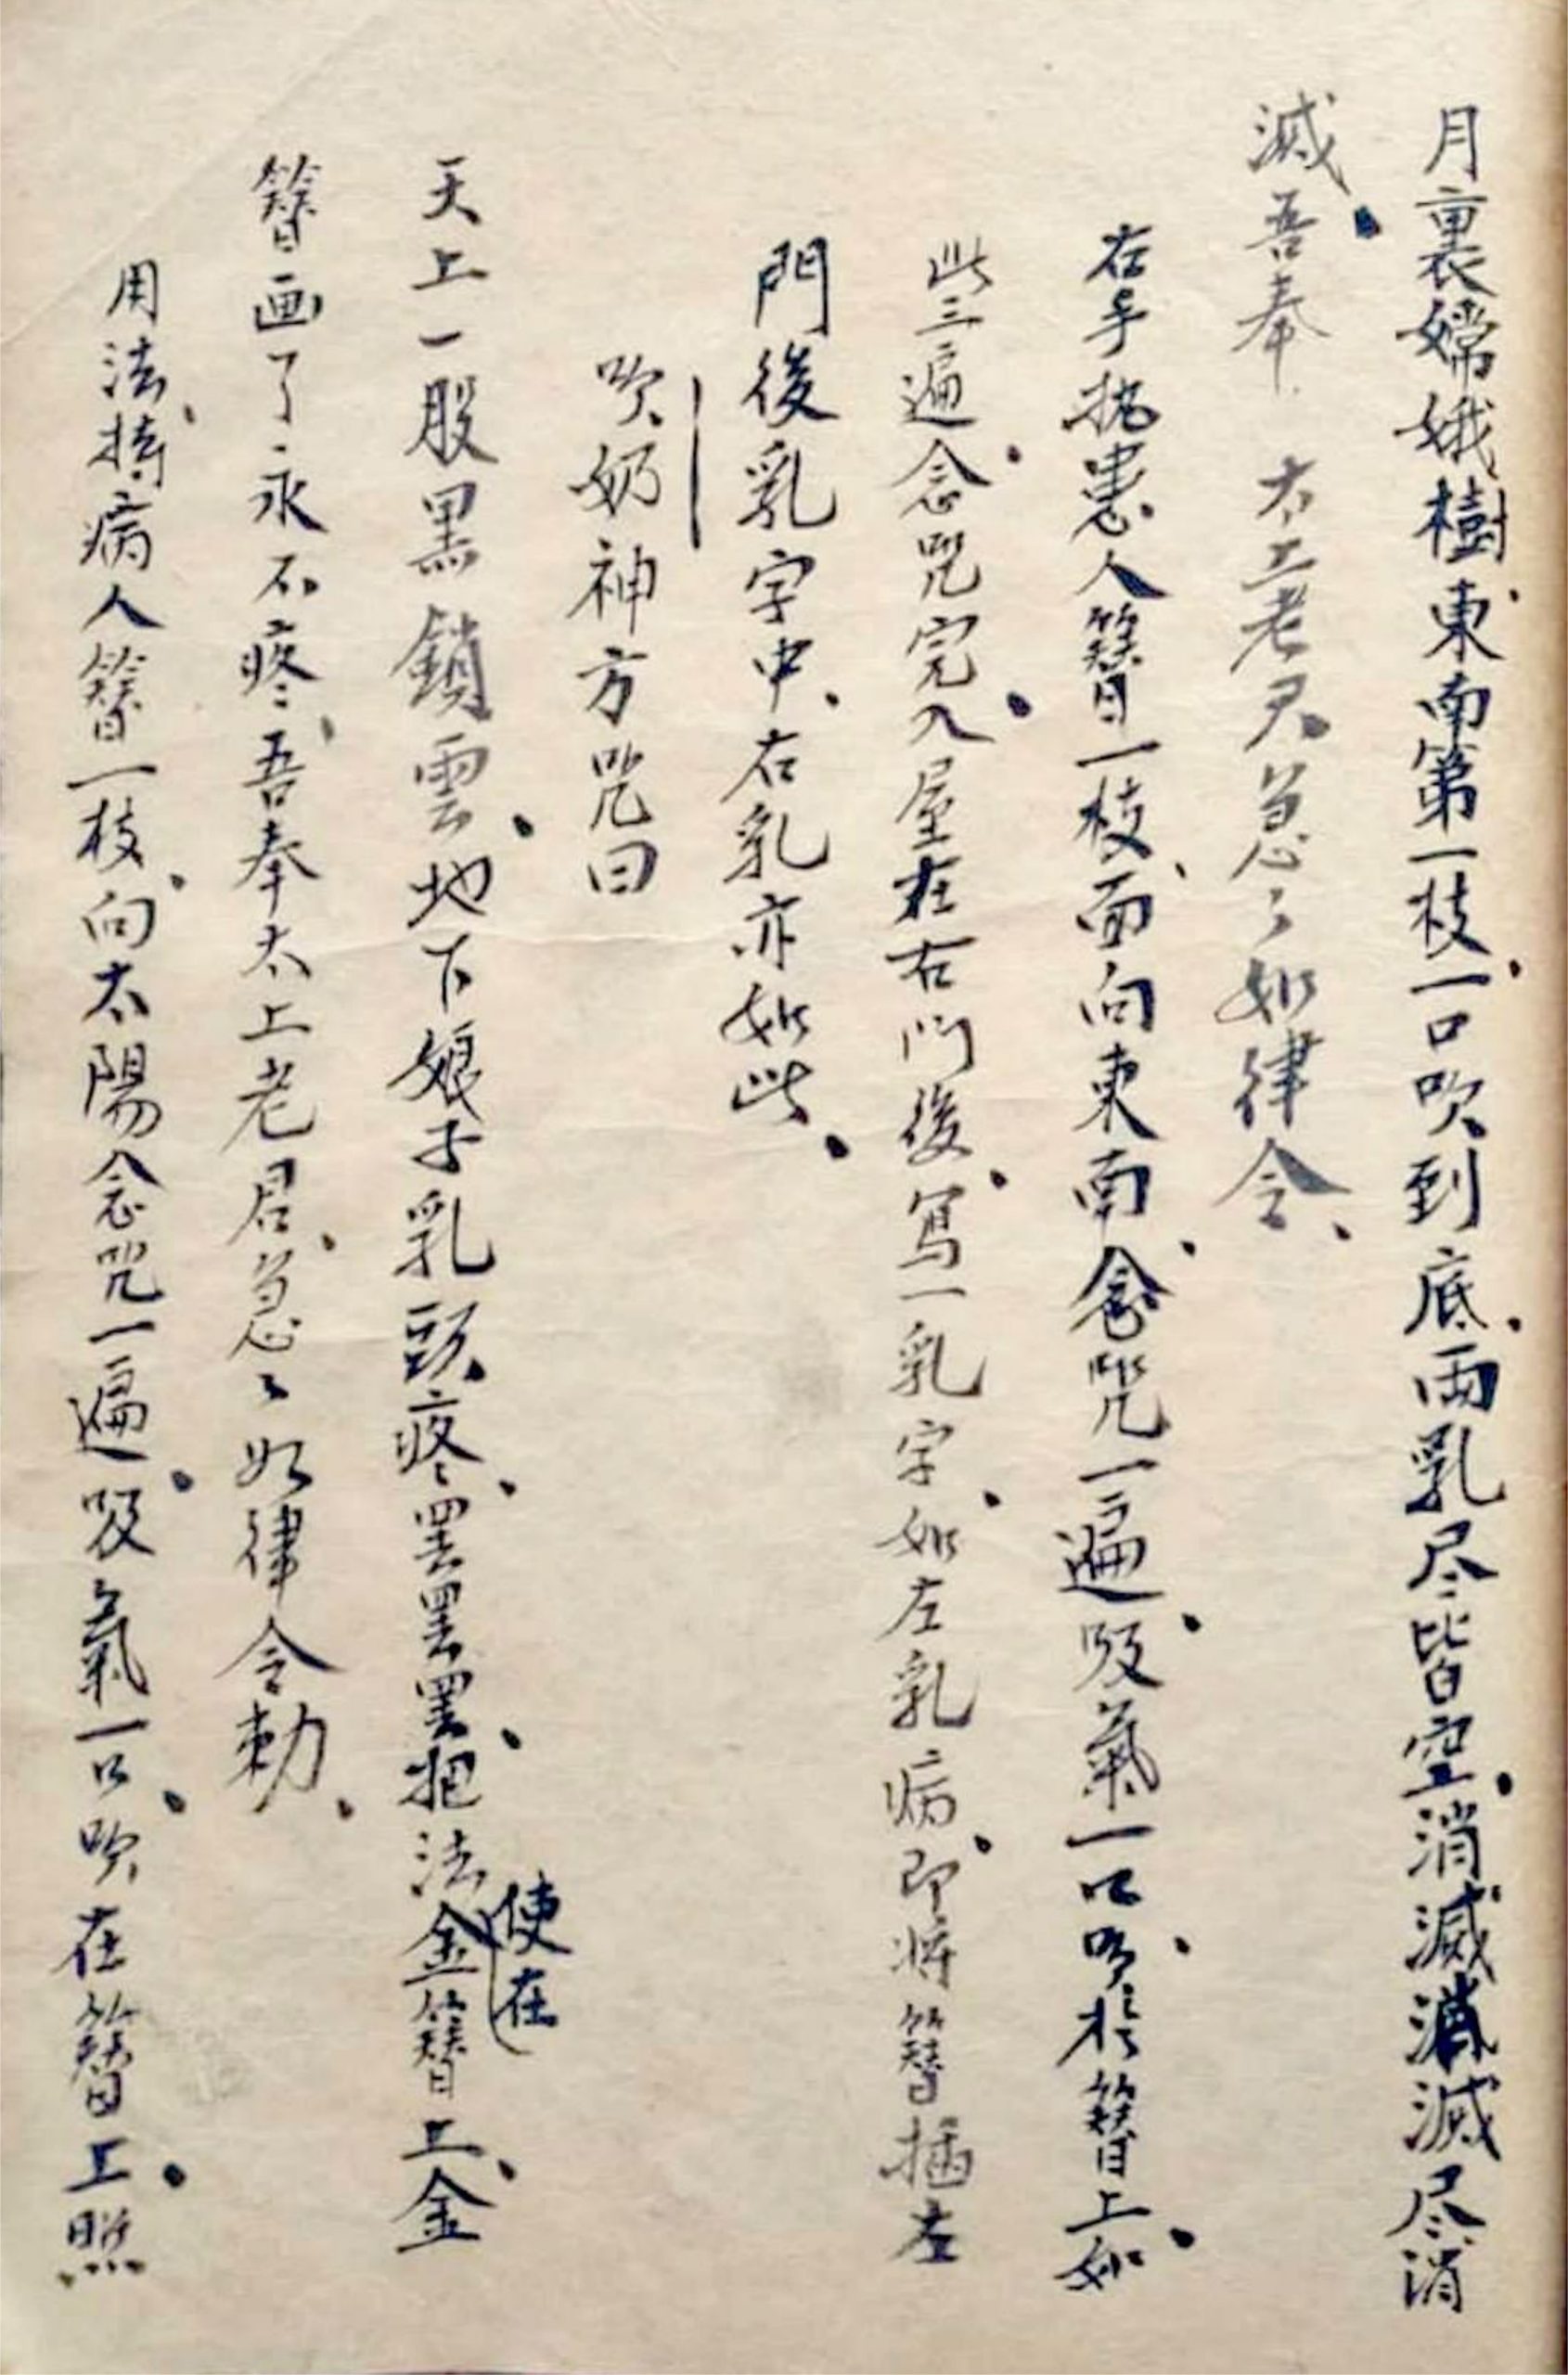 月裏嫦娥樹東南第一枝一口吹到底兩乳尽皆空消滅消滅尽消
滅吾奉 太上老君急々如律令
右手执患人簪一枝面向東南念咒一遍吸氣一口吹於簪上如
此三遍念咒完入屋在右门後寫一乳字如左乳病即將簪插左
門後乳字中右乳亦如此
吹奶神方咒曰
天上一股黑鎖雲地下娘子乳頭疼罢罢罢把法使在金簪上金
簪画了永不疼吾奉太上老君急々如律令勅
用法持病人簪一枝向太陽念咒一遍吸氣一口吹在簪上照